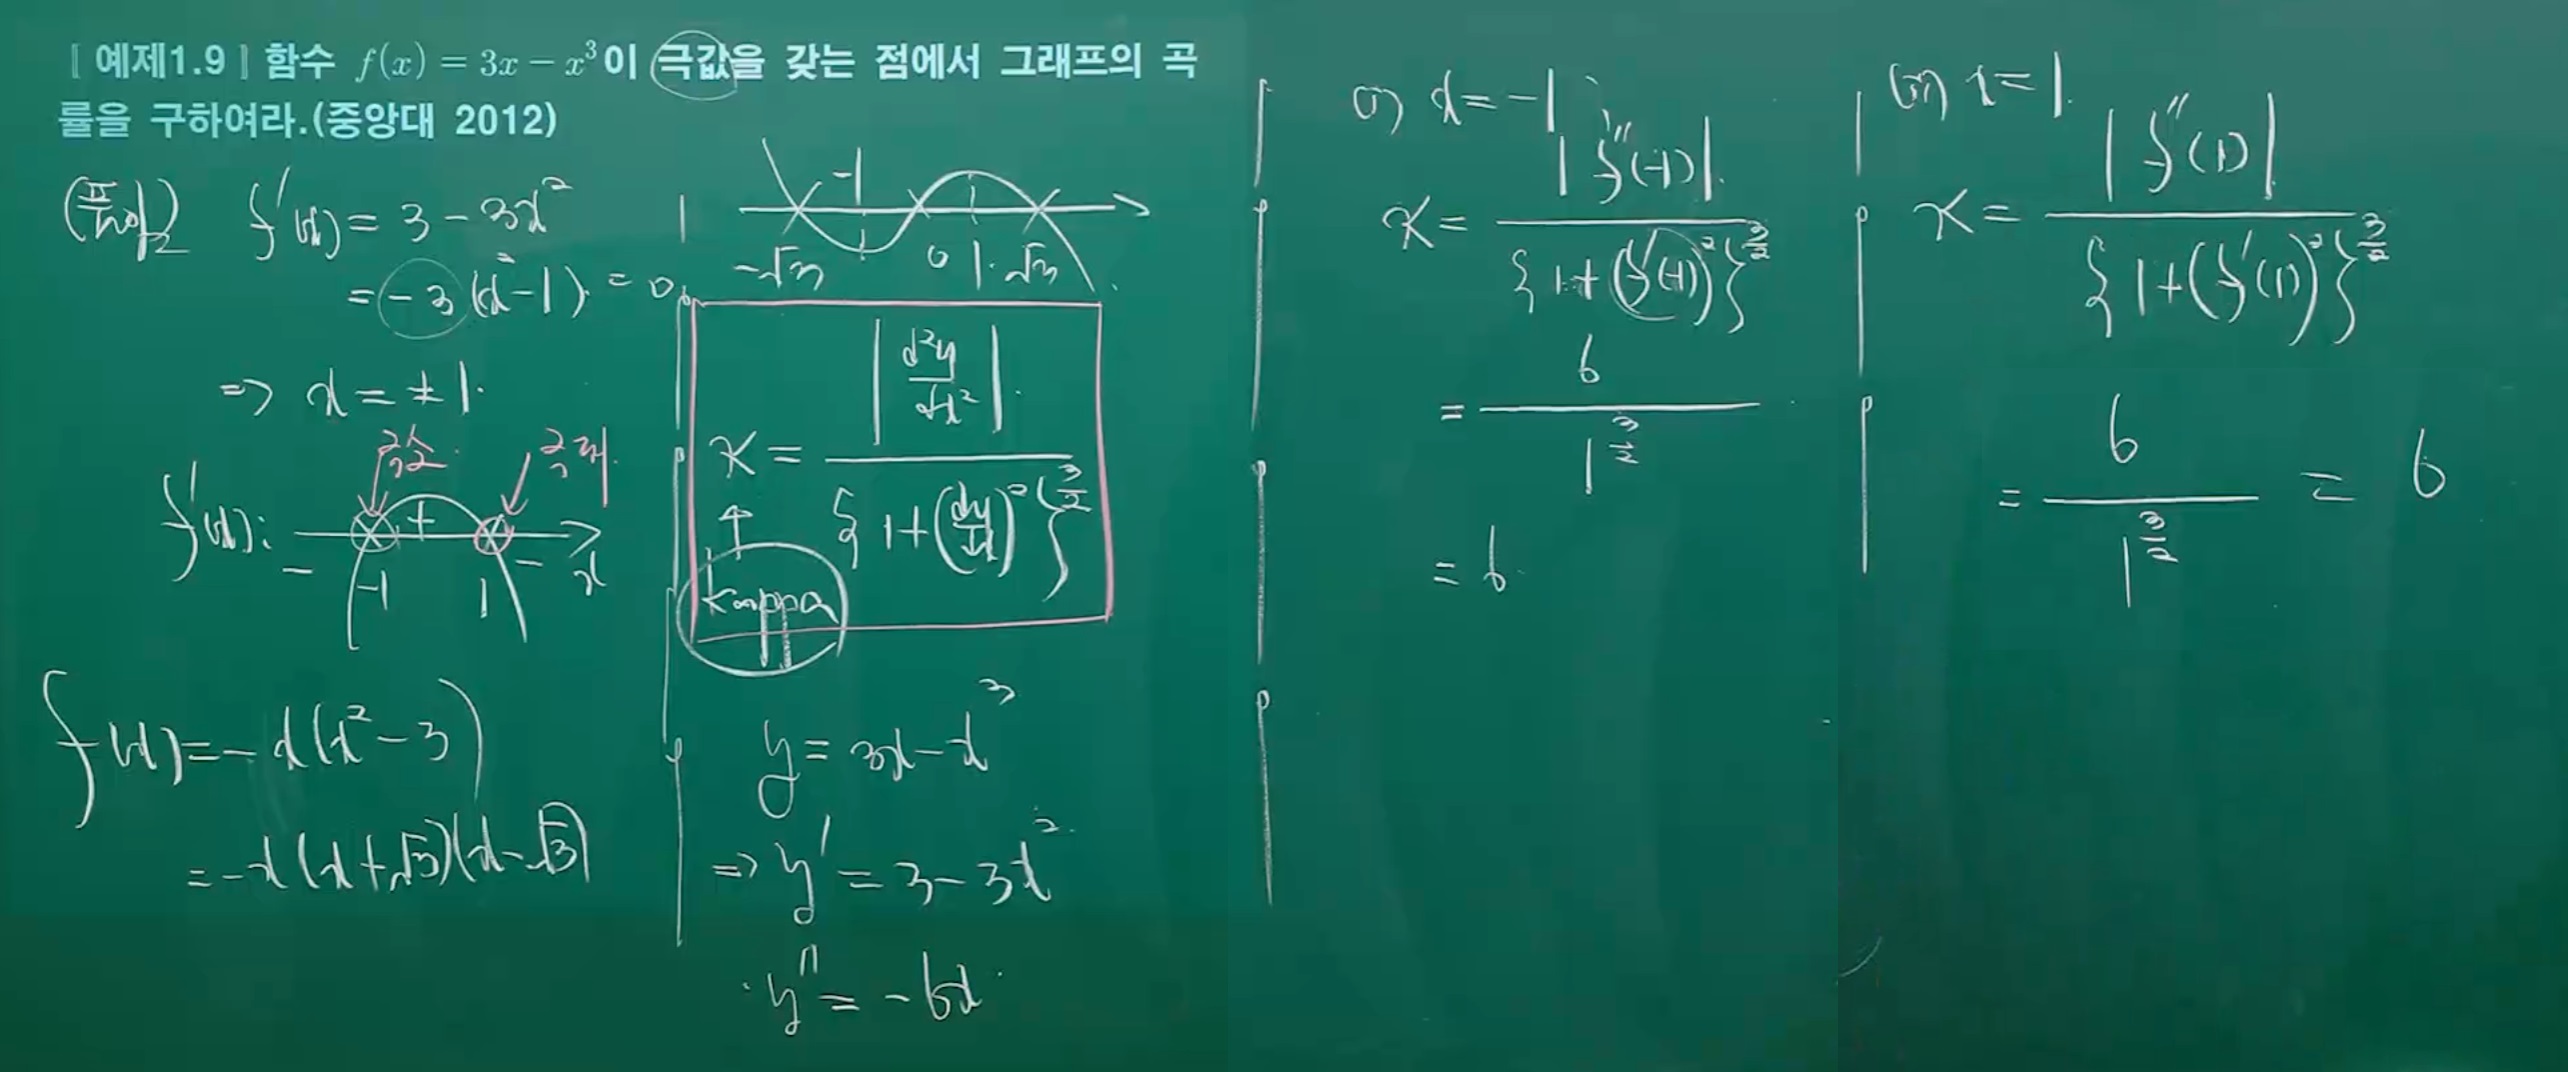 [예제1.9] 함수 f(x) = 3x − x³이 극값을 갖는 점에서 그래프의 곡
률을 구하여라.(중앙대 2012)
(풀이) f'(x) = 3 − 3x²
= −3(x²−1) = 0
⇒ x = ±1.
극소 극대
f'(x): − + − x
−1 1
f(x) = −x(x²−3)
= −x(x+√3)(x−√3)
−1
−√3 0 1 √3
κ = |d²y/dx²| / {1+(dy/dx)²}^(3/2)
kappa
y = 3x − x³
⇒ y' = 3 − 3x²
y'' = −6x
(i) x = −1
κ = |f''(−1)| / {1+(f'(−1))²}^(3/2)
= 6 / 1^(3/2)
= 6
(ii) x = 1.
κ = |f''(1)| / {1+(f'(1))²}^(3/2)
= 6 / 1^(3/2) = 6